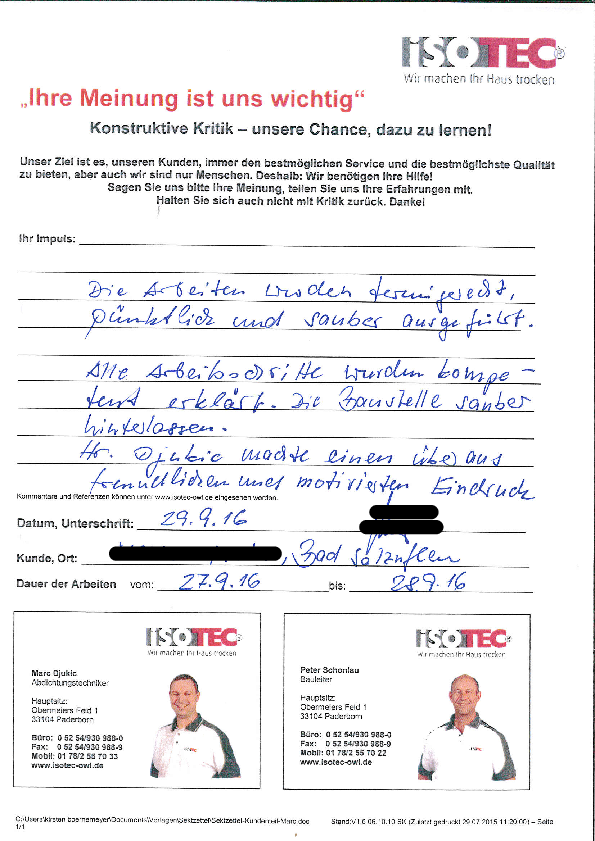 ISOTEC®
Wir machen Ihr Haus trocken
„Ihre Meinung ist uns wichtig“
Konstruktive Kritik – unsere Chance, dazu zu lernen!
Unser Ziel ist es, unseren Kunden, immer den bestmöglichen Service und die bestmöglichste Qualität
zu bieten, aber auch wir sind nur Menschen. Deshalb: Wir benötigen Ihre Hilfe!
Sagen Sie uns bitte Ihre Meinung, teilen Sie uns Ihre Erfahrungen mit.
Halten Sie sich auch nicht mit Kritik zurück. Danke!
Ihr Impuls:
Die Arbeiten wurden termingerecht,
pünktlich und sauber ausgeführt.
Alle Arbeitsschritte wurden kompe-
tent erklärt. Die Baustelle sauber
hinterlassen.
Hr. Djukic machte einen überaus
freundlichen und motivierten Eindruck
Kommentare und Referenzen können unter www.isotec-owl.de eingesehen werden.
Datum, Unterschrift: 29.9.16
Kunde, Ort: , Bad Salzuflen
Dauer der Arbeiten vom: 27.9.16 bis: 28.9.16
ISOTEC®
Wir machen Ihr Haus trocken
Marc Djukic
Abdichtungstechniker
Hauptsitz:
Obermeiers Feld 1
33104 Paderborn
Büro: 0 52 54/930 988-0
Fax: 0 52 54/930 988-9
Mobil: 01 78/2 55 70 33
www.isotec-owl.de
ISOTEC®
Wir machen Ihr Haus trocken
Peter Schonlau
Bauleiter
Hauptsitz:
Obermeiers Feld 1
33104 Paderborn
Büro: 0 52 54/930 988-0
Fax: 0 52 54/930 988-9
Mobil: 01 78/2 55 70 22
www.isotec-owl.de
Stand:V1.6 06.10.10 SK (Zuletzt gedruckt 29.07.2015 11:20:00) – Seite
1/1